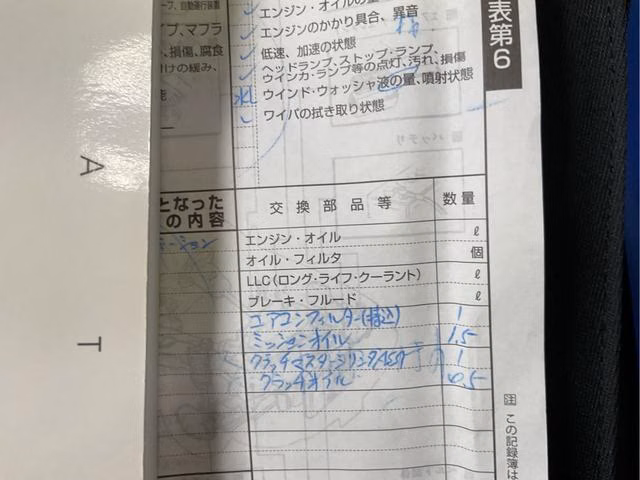 表第6
プ、自動運行装置
エンジン・オイルの量
エンジンのかかり具合、異音
プ、マフラ
低速、加速の状態
、損傷、腐食
ヘッドランプ、ストップ・ランプ、
ウインカ・ランプ等の点灯、汚れ、損傷
付けの緩み、
ウインド・ウォッシャ液の量、噴射状態
ワイパの拭き取り状態
バッテリ
A
T
となった
の内容
交換部品等
数量
ーション
エンジン・オイル ℓ
オイル・フィルタ 個
LLC(ロング・ライフ・クーラント) ℓ
ブレーキ・フルード ℓ
エアコンフィルター(持込) 1
ミッションオイル 1.5
クラッチマスターシリンダASSY 1
クラッチオイル 0.5
注 この記録簿は